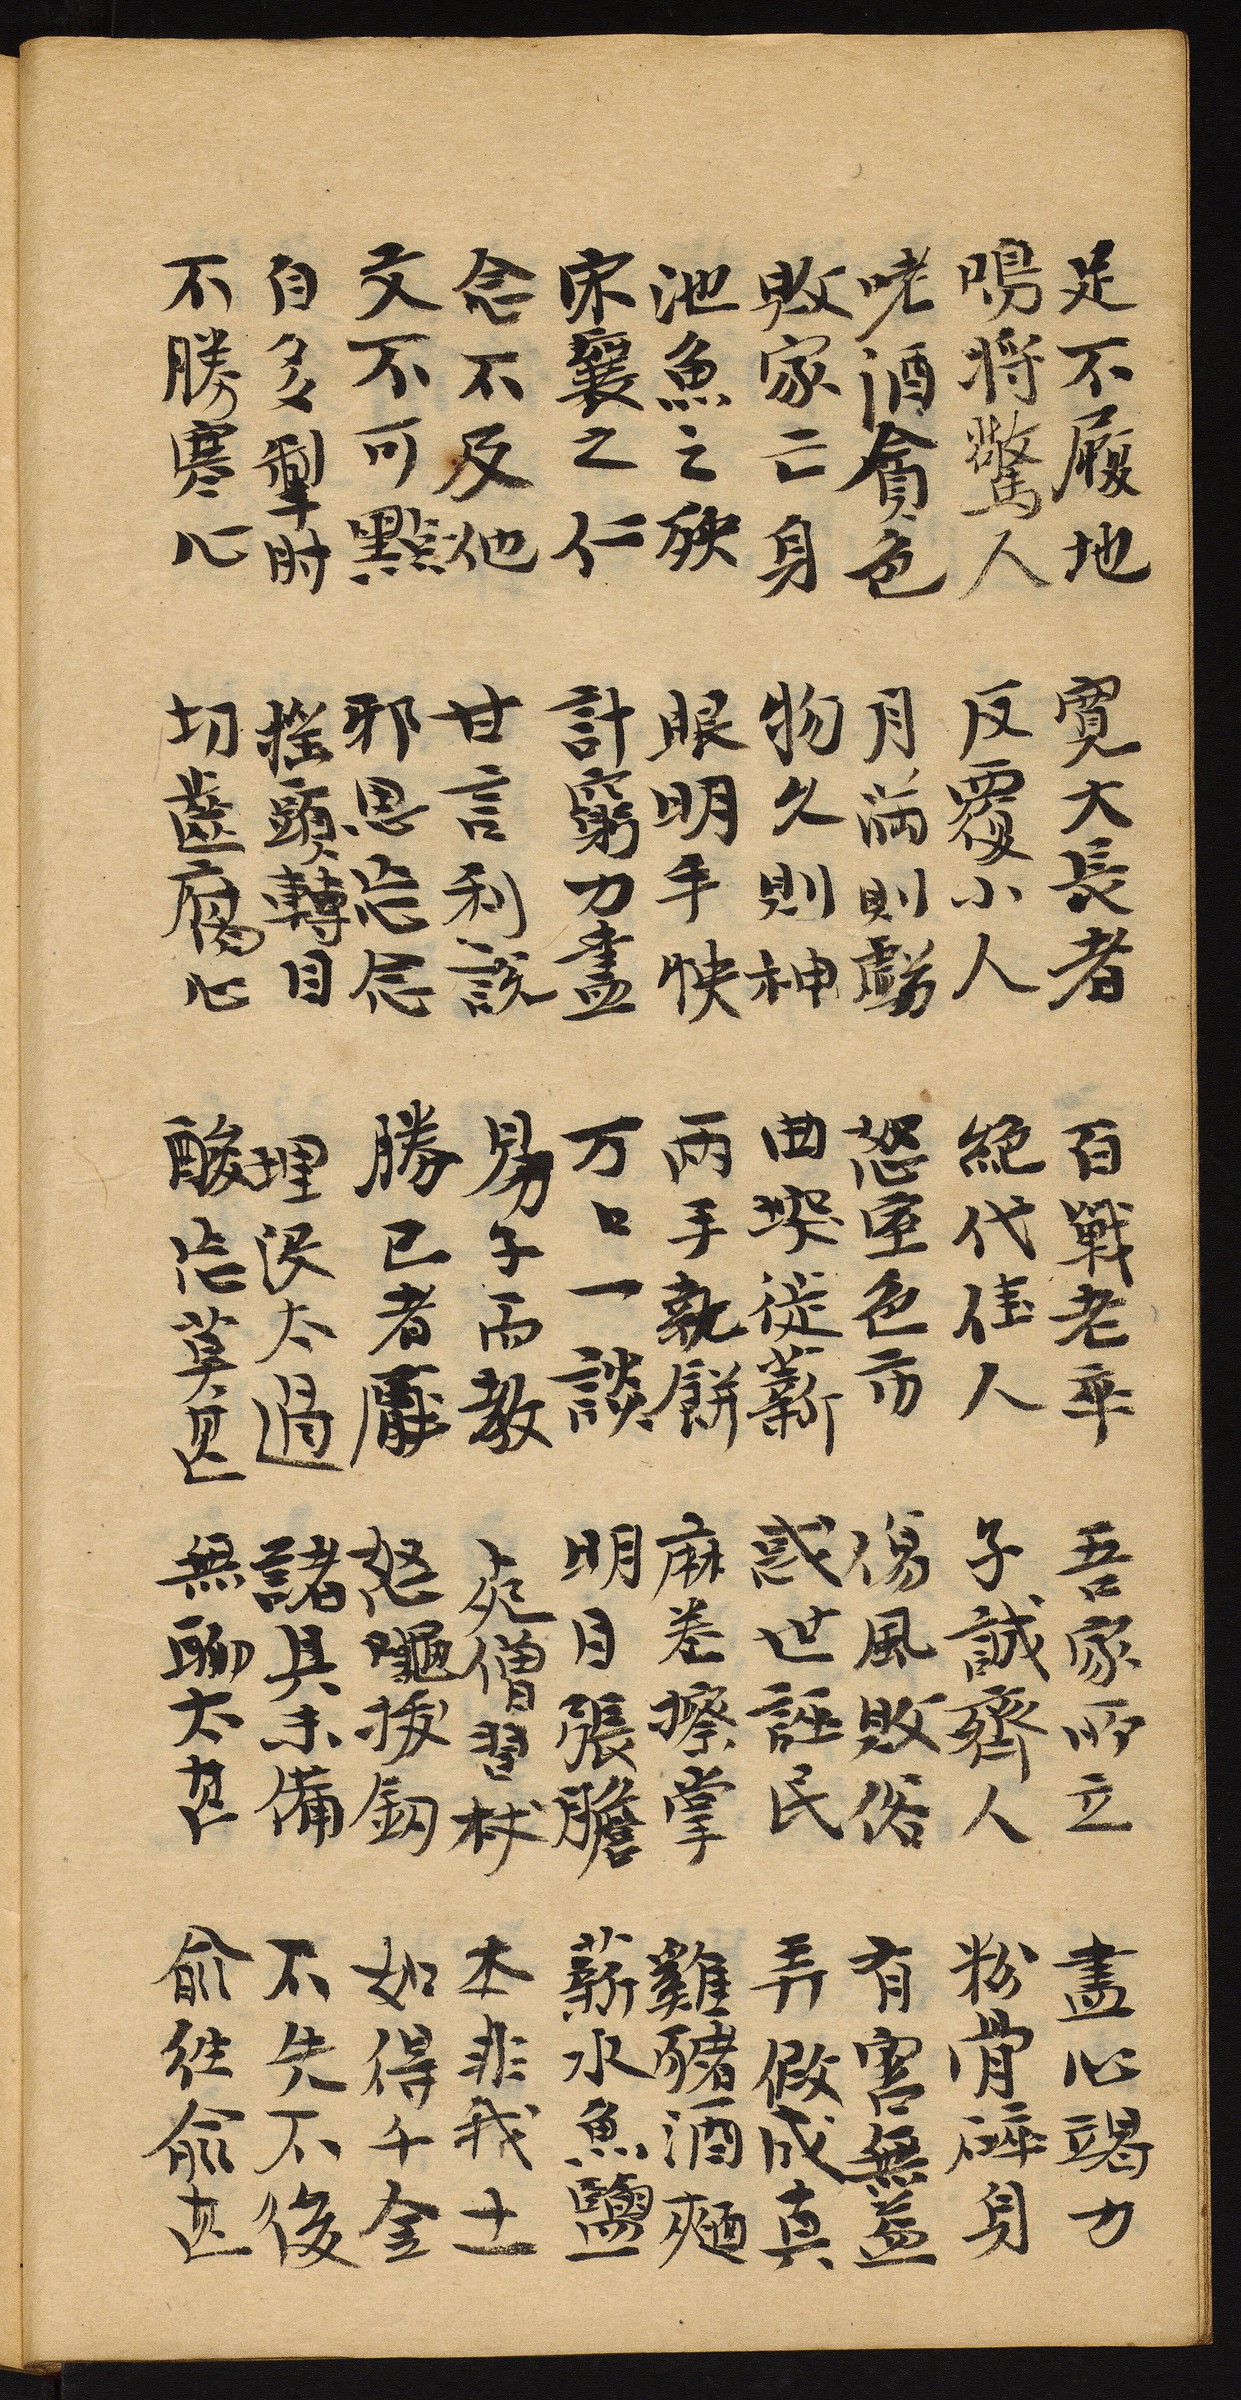 足不履地 寬大長者 百戰老卒 吾家所立 盡心竭力
鳴將驚人 反覆小人 絶代佳人 子誠齊人 粉骨碎身
咾酒貪色 月滿則虧 怒室色市 傷風敗俗 有害無益
敗家亡身 物久則神 曲埃徙薪 惑世誣民 弄假成真
池魚之殃 眼明手快 兩手執餅 麻卷擦掌 雞豬酒麵
宋襄之仁 計窮力盡 万口一談 明目張膽 薪水魚鹽
念不及他 甘言利說 易子而教 死僧習杖 本非我土
文不可點 邪思忘念 勝已者厭 怒蠅拔釼 如得千金
自多犁时 搖頭轉目 埋没太過 諸具未備 不先不後
不勝寒心 切齒腐心 酸沽莫甚 無聊太甚 俞往俞甚